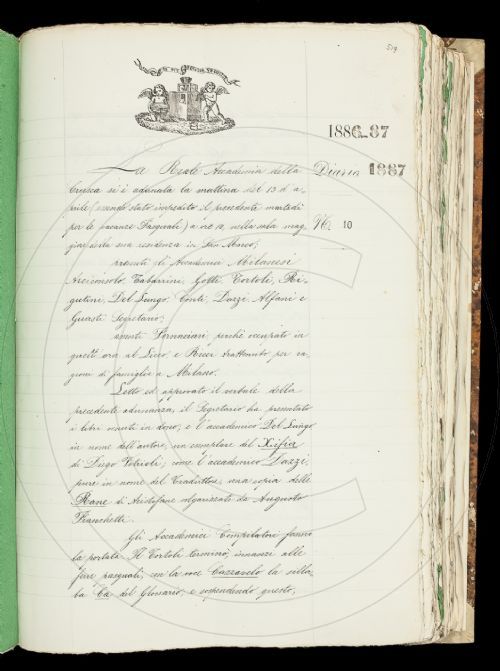 519
IL PIÙ BEL FIOR NE COGLIE
1886-87
La Reale Accademia della
Diario 1887
Crusca si è adunata la mattina del 13 d'a-
prile (essendo stato impedito il precedente martedì
per le vacanze Pasquali) a ore 12, nella sala mag-
No. 10
giore della sua residenza in San Marco;
presenti gli Accademici Milanesi
Arciconsolo, Tabarrini, Gotti, Tortoli, Ri-
gutini, Del Lungo, Conti, Dazzi, Alfani e
Guasti Segretario;
assenti Fornaciari, perchè occupato in
quest'ora al Liceo, e Ricci trattenuto per ra-
gione di famiglia a Milano.
Letto ed approvato il verbale della
precedente adunanza, il Segretario ha presentato
i libri venuti in dono; e l'accademico Del Lungo
in nome dell'autore, un esemplare del Xifia
di Diego Vitrioli; come l'accademico Dazzi,
pure in nome del Traduttore, una copia delle
Rane di Aristofane volgarizzate da Augusto
Franchetti.
Gli Accademici Compilatori fanno
la portata. Il Tortoli terminò, innanzi alle
ferie pasquali, con la voce Cazzavelo la silla-
ba Ca del Glossario; e sospendendo questo,